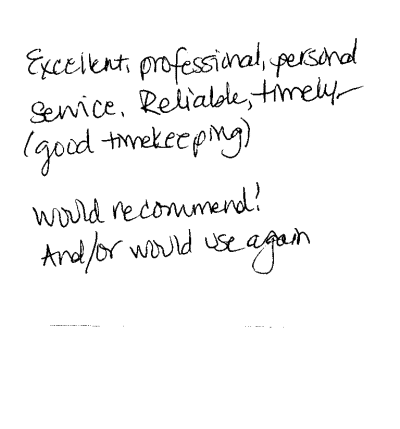 Excellent, professional, personal
service. Reliable, timely
(good timekeeping)
would recommend!
And/or would use again